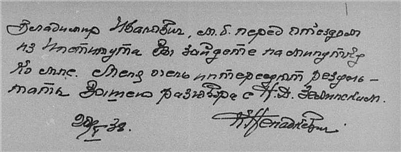 Владимир Иванович, м.б. перед отъездом
из Института Вы зайдете на минутку
ко мне. Меня очень интересует резуль-
таты Вашего разговора с Н.Д. Зелинским.
38.